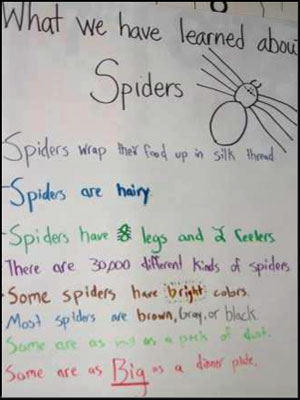 What we have learned abou
Spiders
Spiders wrap their food up in silk thread.
-Spiders are hairy.
-Spiders have 8 legs and 2 feelers
There are 30,000 different kinds of spiders
-Some spiders have bright colors.
Most spiders are brown, Gray, or black.
Some are as as a of dust.
Some are as Big as a dinner plate.